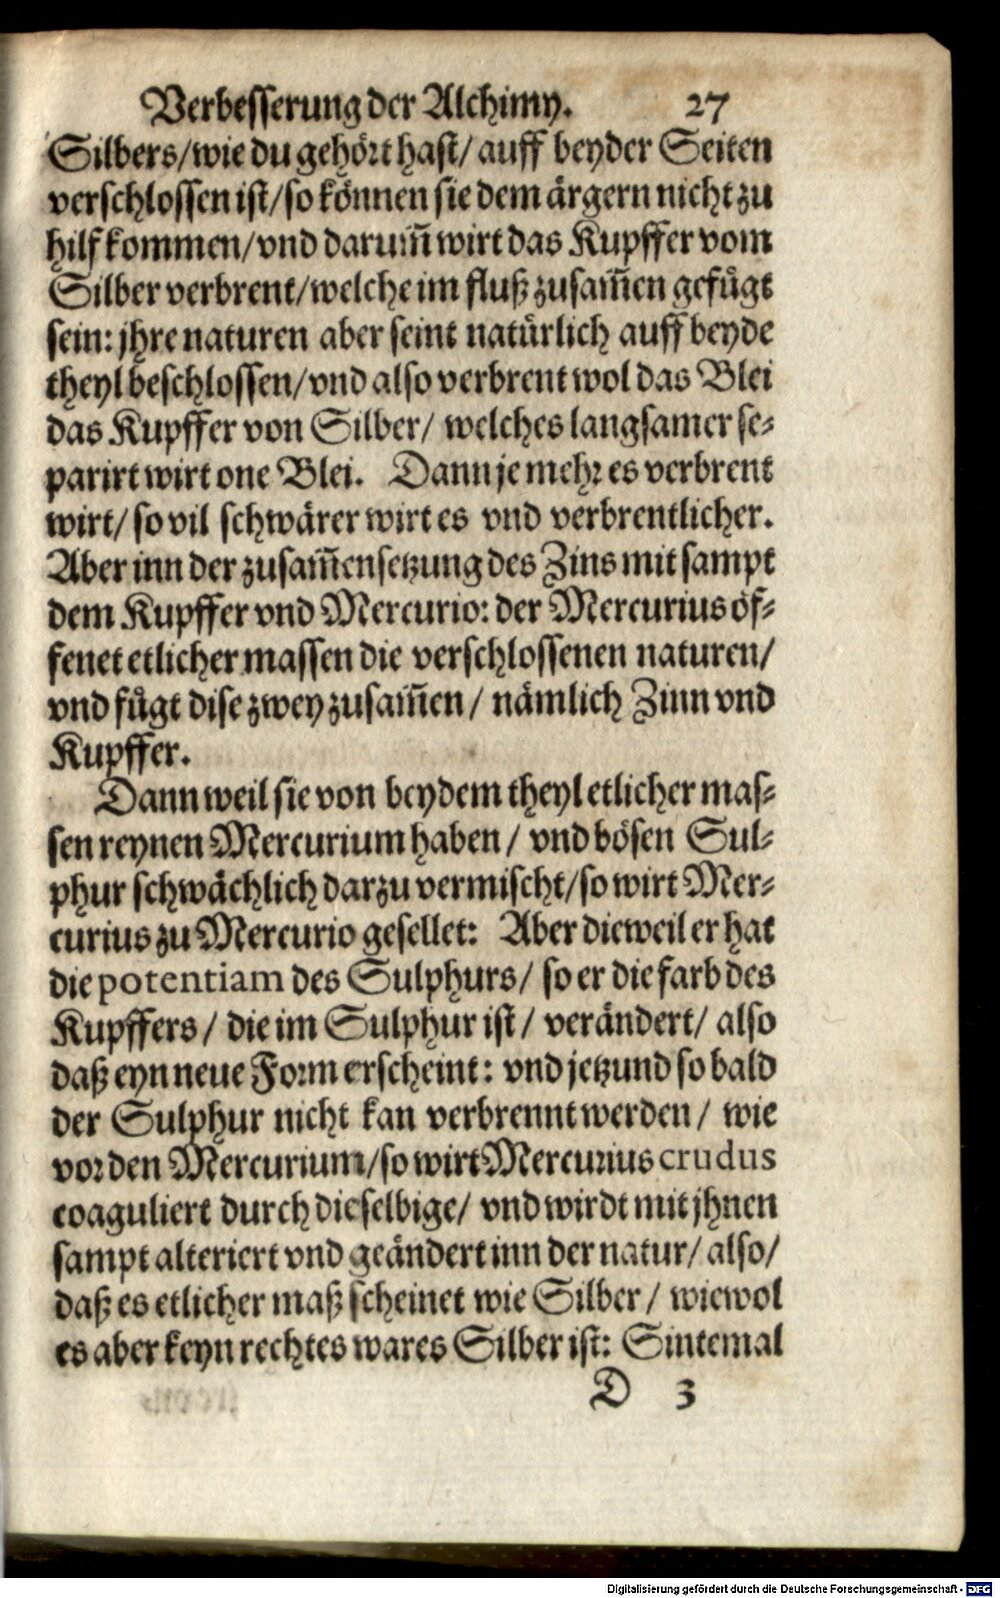 Verbesserung der Alchimy. 27
Silbers/ wie du gehört hast/ auff beyder Seiten
verschlossen ist/ so können sie dem ärgern nicht zu
hilf kommen/ vnd darum̃ wirt das Kupffer vom
Silber verbrent/ welche im fluß zusam̃en gefügt
sein: jhre naturen aber seint natürlich auff beyde
theyl beschlossen/ vnd also verbrent wol das Blei
das Kupffer von Silber/ welches langsamer se-
parirt wirt one Blei. Dann je mehr es verbrent
wirt/ so vil schwärer wirt es vnd verbrentlicher.
Aber inn der zusam̃ensetzung des Zins mit sampt
dem Kupffer vnd Mercurio: der Mercurius öf-
fenet etlicher massen die verschlossenen naturen/
vnd fügt dise zwey zusam̃en/ nämlich Zinn vnd
Kupffer.
Dann weil sie von beydem theyl etlicher mas-
sen reynen Mercurium haben/ vnd bösen Sul-
phur schwächlich darzu vermischt/ so wirt Mer-
curius zu Mercurio gesellet: Aber dieweil er hat
die potentiam des Sulphurs/ so er die farb des
Kupffers/ die im Sulphur ist/ verändert/ also
daß eyn neue Form erscheint: vnd jetzund so bald
der Sulphur nicht kan verbrennt werden/ wie
vor den Mercurium/ so wirt Mercurius crudus
coaguliert durch dieselbige/ vnd wirdt mit jhnen
sampt alteriert vnd geändert inn der natur/ also/
daß es etlicher maß scheinet wie Silber/ wiewol
es aber keyn rechtes wares Silber ist: Sintemal
D 3
Digitalisierung gefördert durch die Deutsche Forschungsgemeinschaft - DFG